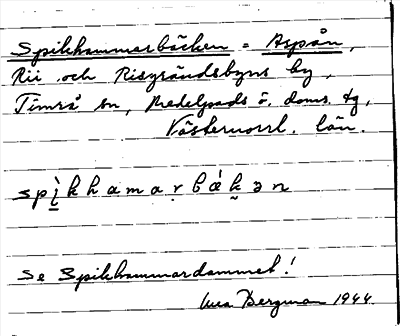 Spikhammarbäcken = Aspån,
Rii och Risgrändsbyns by,
Timrå sn, Medelpads ö. doms. tg,
Västernorrl. län.
spi̠̇̀khamaṛbǽk̬ən
Se Spikhammardammet!
Bergman 1944